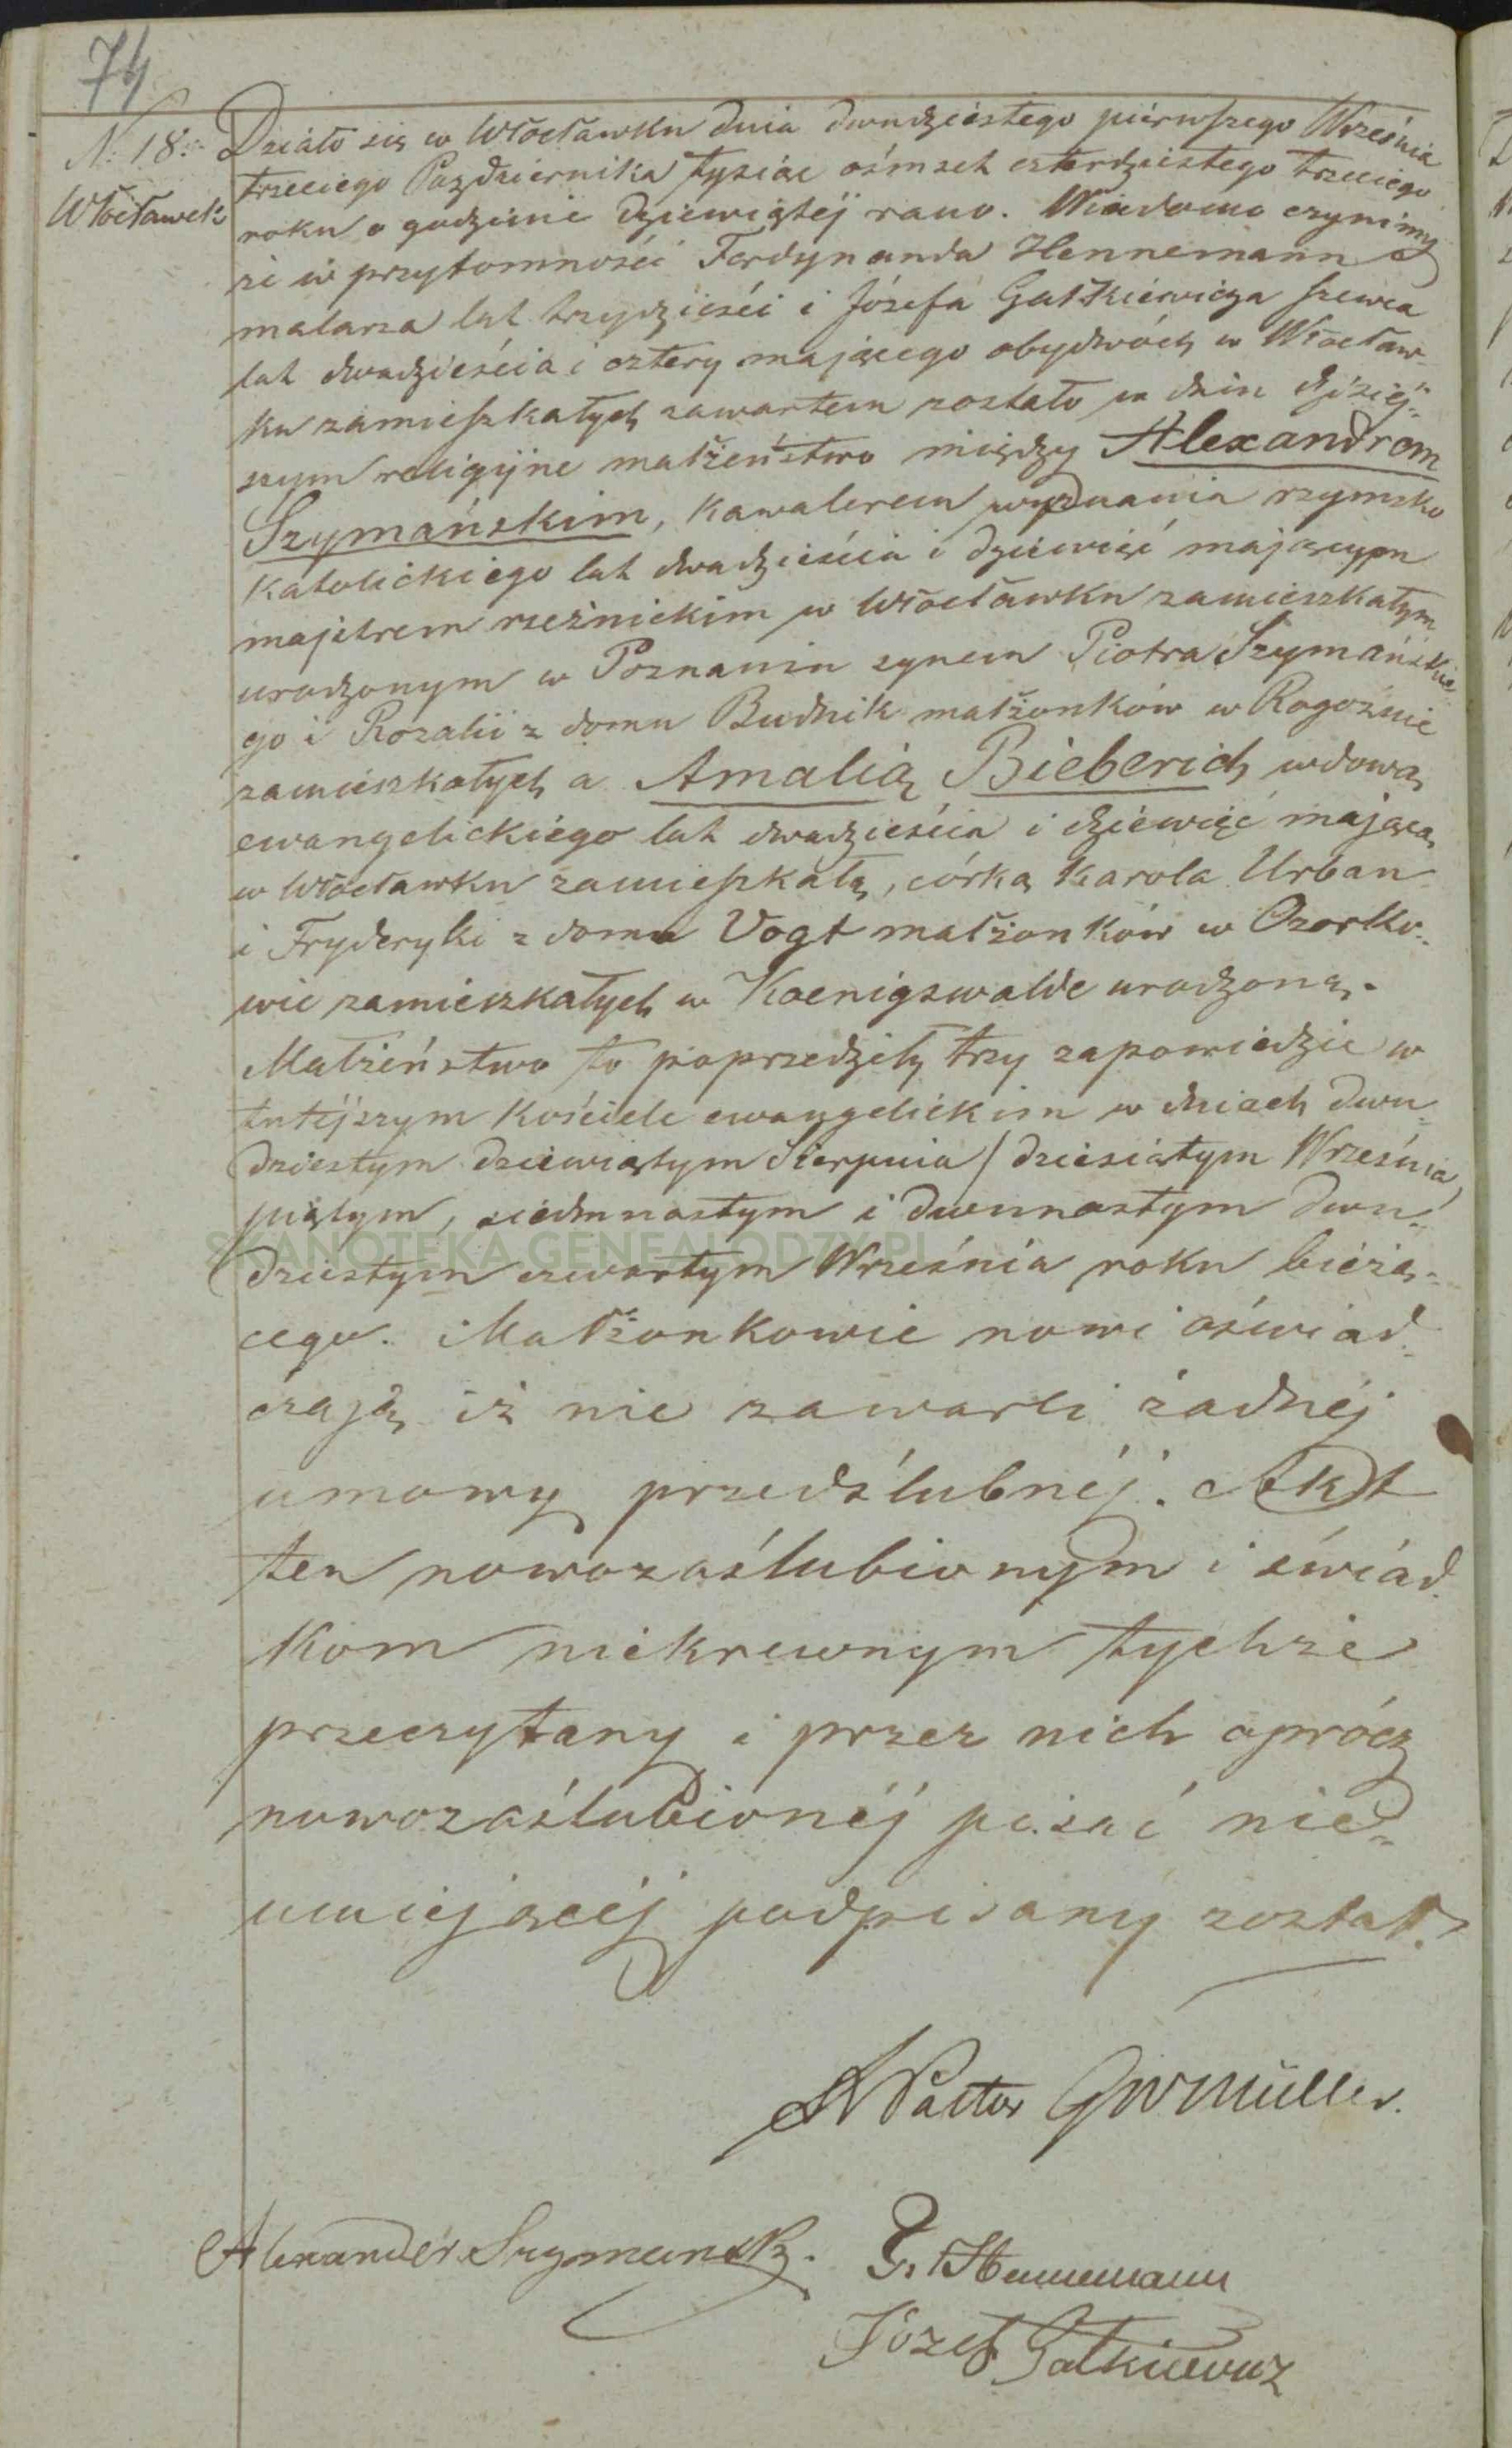 74
N. 18.
Włocławek
Działo się w Włocławku dnia dwudziestego piérwszego Września
trzeciego Października tysiąc ośmset czterdziestego trzeciego
roku o godzinie dziewiątéj rano. Wiadomo czynimy
że w przytomności Ferdynanda Hennemann
malarza lat trzydzieści i Józefa Gałkiewicza szewca
lat dwadzieścia i cztery mającego obydwóch w Włocław-
ku zamieszkałych zawartem zostało w dniu dzisiéj-
szym religijne małżeństwo między Alexandrem
Szymańskim, Kawalerem wyznania rzymsko
katolickiego lat dwadzieścia i dziewięć mającym
majstrem rzeźnickim w Włocławku zamieszkałym
urodzonym w Poznaniu synem Piotra Szymańskie
go i Rozalii z domu Budnik małżonków w Rogoźnie
zamieszkałych a Amalią Bieberich wdową
ewangelickiego lat dwadzieścia i dziewięć mającą
w Włocławku zamieszkałą, córką Karola Urban
i Fryderyki z domu Vogt małżonków w Ozorko-
wie zamieszkałych w Koenigswalde urodzoną.
Małżeństwo to poprzedziły trzy zapowiedzie w
tutéjszym Kościele ewangelickim w dniach dwu-
dziestym dziewiątym Sierpnia / dziesiątym Września,
piątym, siedmnastym i dwunastym dwu-
dziestym czwartym Września roku bieżą-
cego. Małżonkowie nowi oświad-
czają iż nie zawarli żadnéj
umowy przedślubnéj. Akt
ten nowozaślubionym i świad-
kom niekrewnym tychże
przeczytany i przez nich oprócz
nowozaślubionéj pisać nie-
umiejącéj podpisany został.
SKANOTEKA.GENEALODZY.PL
Pastor GWMüller.
Alexander Szymanski.
Hennemann
Józef Gałkiewicz